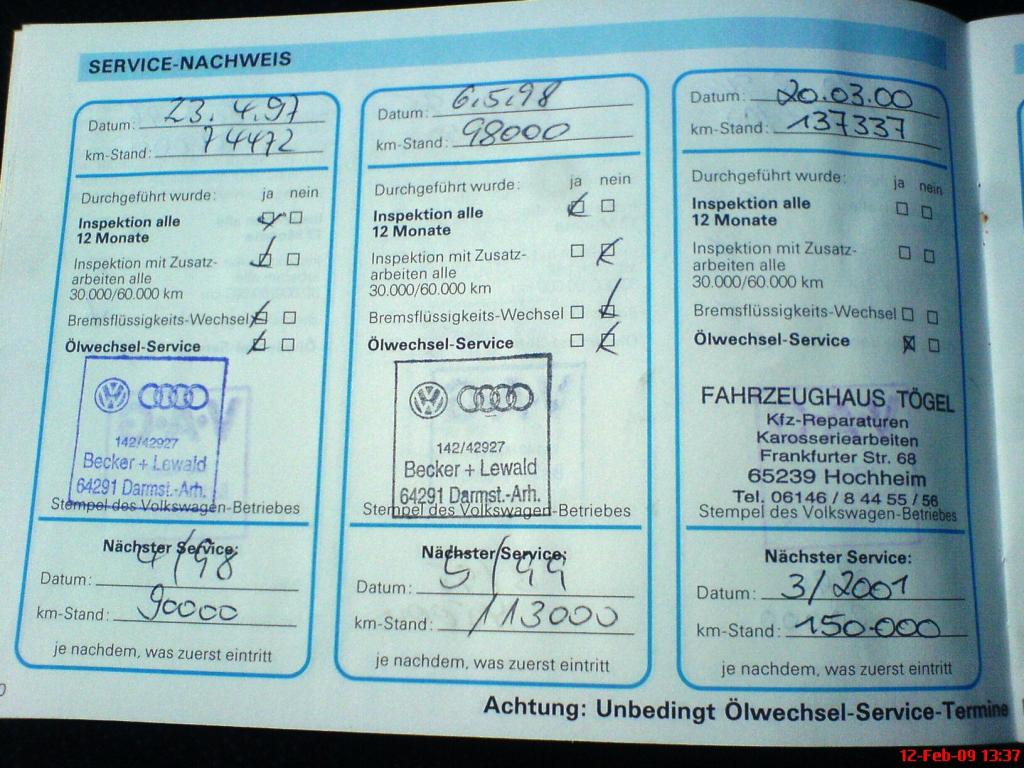 SERVICE-NACHWEIS
Datum: 23.4.97
km-Stand: 74472
Durchgeführt wurde: ja nein
Inspektion alle
12 Monate
Inspektion mit Zusatz-
arbeiten alle
30.000/60.000 km
Bremsflüssigkeits-Wechsel
Ölwechsel-Service
142/42927
Becker + Lewald
64291 Darmst.-Arh.
Stempel des Volkswagen-Betriebes
Nächster Service:
Datum: 4/98
km-Stand: 90000
je nachdem, was zuerst eintritt
Datum: 6.5.98
km-Stand: 98000
Durchgeführt wurde: ja nein
Inspektion alle
12 Monate
Inspektion mit Zusatz-
arbeiten alle
30.000/60.000 km
Bremsflüssigkeits-Wechsel
Ölwechsel-Service
142/42927
Becker + Lewald
64291 Darmst.-Arh.
Stempel des Volkswagen-Betriebes
Nächster Service:
Datum: 5/99
km-Stand: 113000
je nachdem, was zuerst eintritt
Datum: 20.03.00
km-Stand: 137337
Durchgeführt wurde: ja nein
Inspektion alle
12 Monate
Inspektion mit Zusatz-
arbeiten alle
30.000/60.000 km
Bremsflüssigkeits-Wechsel
Ölwechsel-Service
FAHRZEUGHAUS TÖGEL
Kfz-Reparaturen
Karosseriearbeiten
Frankfurter Str. 68
65239 Hochheim
Tel. 06146 / 8 44 55 / 56
Stempel des Volkswagen-Betriebes
Nächster Service:
Datum: 3/2001
km-Stand: 150.000
je nachdem, was zuerst eintritt
Achtung: Unbedingt Ölwechsel-Service-Termine
12-Feb-09 13:37